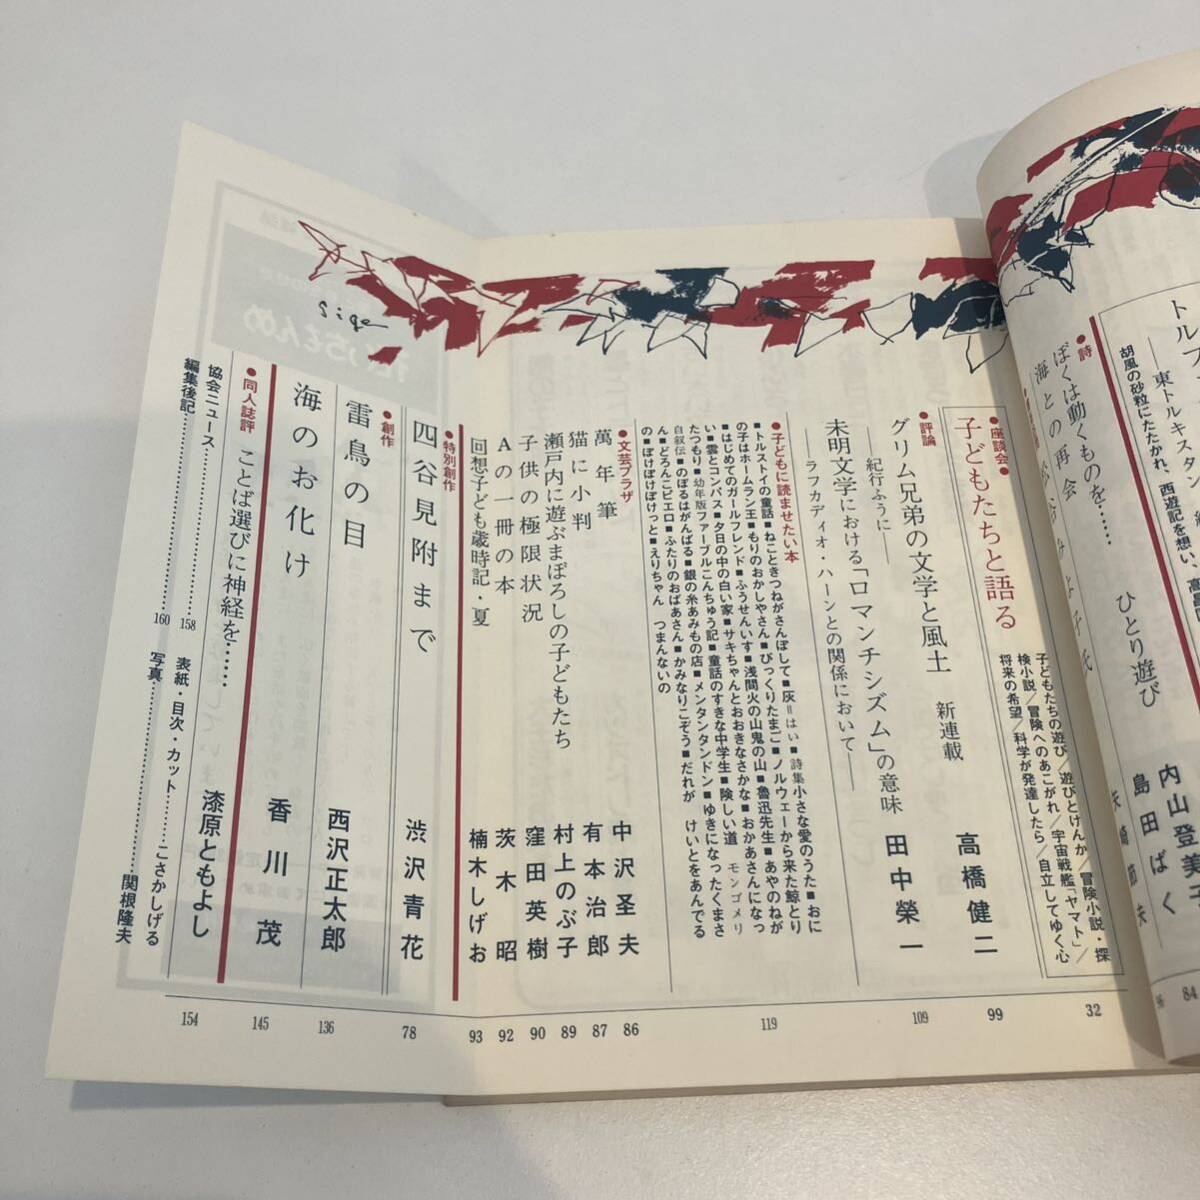 トルフ
―東トルキスタン
胡風の砂粒にたたかれ、西遊記を想い、
●詩
ぼくは動くものを……
海との再会
ひとり遊び
内山登美子
島田ばく
84
●座談会●
子どもたちと語る
子どもたちの遊び/遊びとけんか/冒険小説・探
検小説/冒険へのあこがれ/宇宙戦艦「ヤマト」/
将来の希望/科学が発達したら/自立してゆく心
32
●評論
グリム兄弟の文学と風土 新連載
―紀行ふうに―
高橋健二
99
未明文学における「ロマンチシズム」の意味
―ラフカディオ・ハーンとの関係において―
田中榮一
109
●子どもに読ませたい本
■トルストイの童話■ねこときつねがさんぽして■灰=はい■詩集小さな愛のうた■おに
の子はホームラン王■もりのおかしやさん■びっくりたまご■ノルウェーから来た鯨とり
■はじめてのガールフレンド■ふうせんいす■浅間火の山鬼の山■魯迅先生■あやのねが
い■雲とコンパス■夕日の中の白い家■サキちゃんとおおきなさかな■おかあさんになっ
たつもり■幼年版ファーブルこんちゅう記■童話のすきな中学生■険しい道 モンゴメリ
自叙伝■のぼるはがんばる■銀の糸あみもの店■メンタンタンドン■ゆきになったくまさ
ん■どろんこピエロ■ふたりのおばあさん■かみなりこぞう■だれが けいとをあんでる
の■ぽけぽけぽけっと■えりちゃん つまんないの
119
●文芸プラザ
萬年筆 中沢圣夫 86
猫に小判 有本治郎 87
瀬戸内に遊ぶまぼろしの子どもたち 村上のぶ子 89
子供の極限状況 窪田英樹 90
Aの一冊の本 茨木昭 92
回想子ども歳時記・夏 楠木しげお 93
●特別創作
四谷見附まで 渋沢青花 78
●創作
雷鳥の目 西沢正太郎 136
海のお化け 香川茂 145
●同人誌評 ことば選びに神経を…… 漆原ともよし 154
協会ニュース…… 158
編集後記…… 160
表紙・目次・カット……こさかしげる
写真……関根隆夫